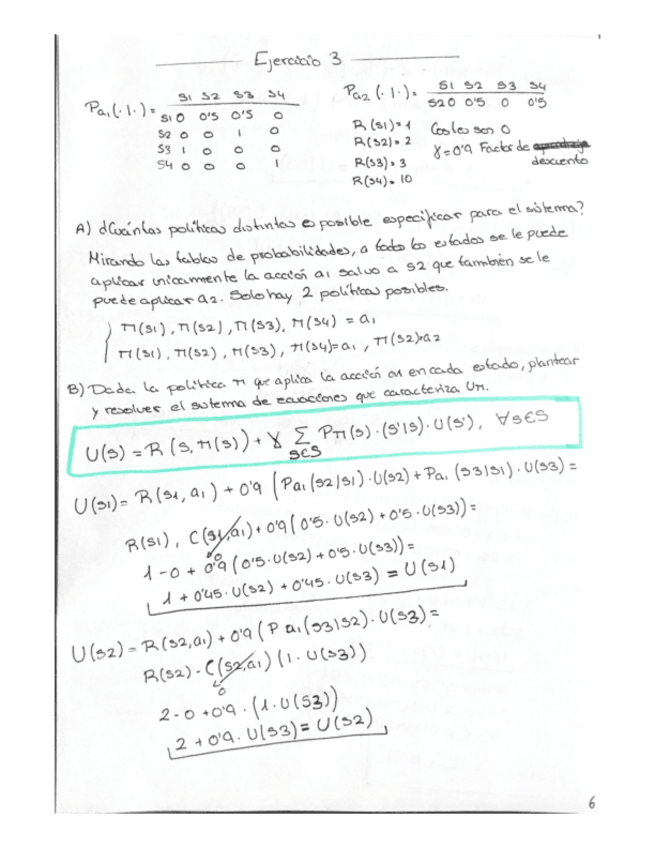 Ejercicio 3
Pa1(·|·)=
S1 S2 S3 S4
S1 0 0'5 0'5 0
S2 0 0 1 0
S3 1 0 0 0
S4 0 0 0 1
Pa2 (·|·)=
S1 S2 S3 S4
S2 0 0'5 0 0'5
R(S1)=1
R(S2)=2
R(S3)=3
R(S4)=10
Costes son 0
γ=0'9 Factor de
descuento
A) ¿Cuántas políticas distintas es posible especificar para el sistema?
Mirando las tablas de probabilidades, a todos los estados se le puede
aplicar unicamente la acción a1 salvo a S2 que también se le
puede aplicar a2. Solo hay 2 políticas posibles.
π(S1), π(S2), π(S3), π(S4) = a1
π(S1), π(S2), π(S3), π(S4)=a1, π(S2)=a2
B) Dada la política π que aplica la acción a1 en cada estado, plantear
y resolver el sistema de ecuaciones que caracteriza Uπ.
U(S) = R(S, π(S)) + γ Σ Pπ(S)·(S'|S)·U(S'), ∀S∈S
S∈S
U(S1)= R(S1, a1) + 0'9 (Pa1(S2|S1)·U(S2)+Pa1(S3|S1)·U(S3) =
R(S1), C(S1,a1)+0'9(0'5·U(S2)+0'5·U(S3))=
0
1-0 + 0'9(0'5·U(S2)+0'5·U(S3))=
1+0'45·U(S2)+0'45·U(S3) = U(S1)
U(S2)= R(S2,a1) + 0'9 (Pa1(S3|S2)·U(S3)=
R(S2)-C(S2,a1)(1·U(S3))
0
2-0+0'9·(1·U(S3))
2+0'9·U(S3)=U(S2)
6